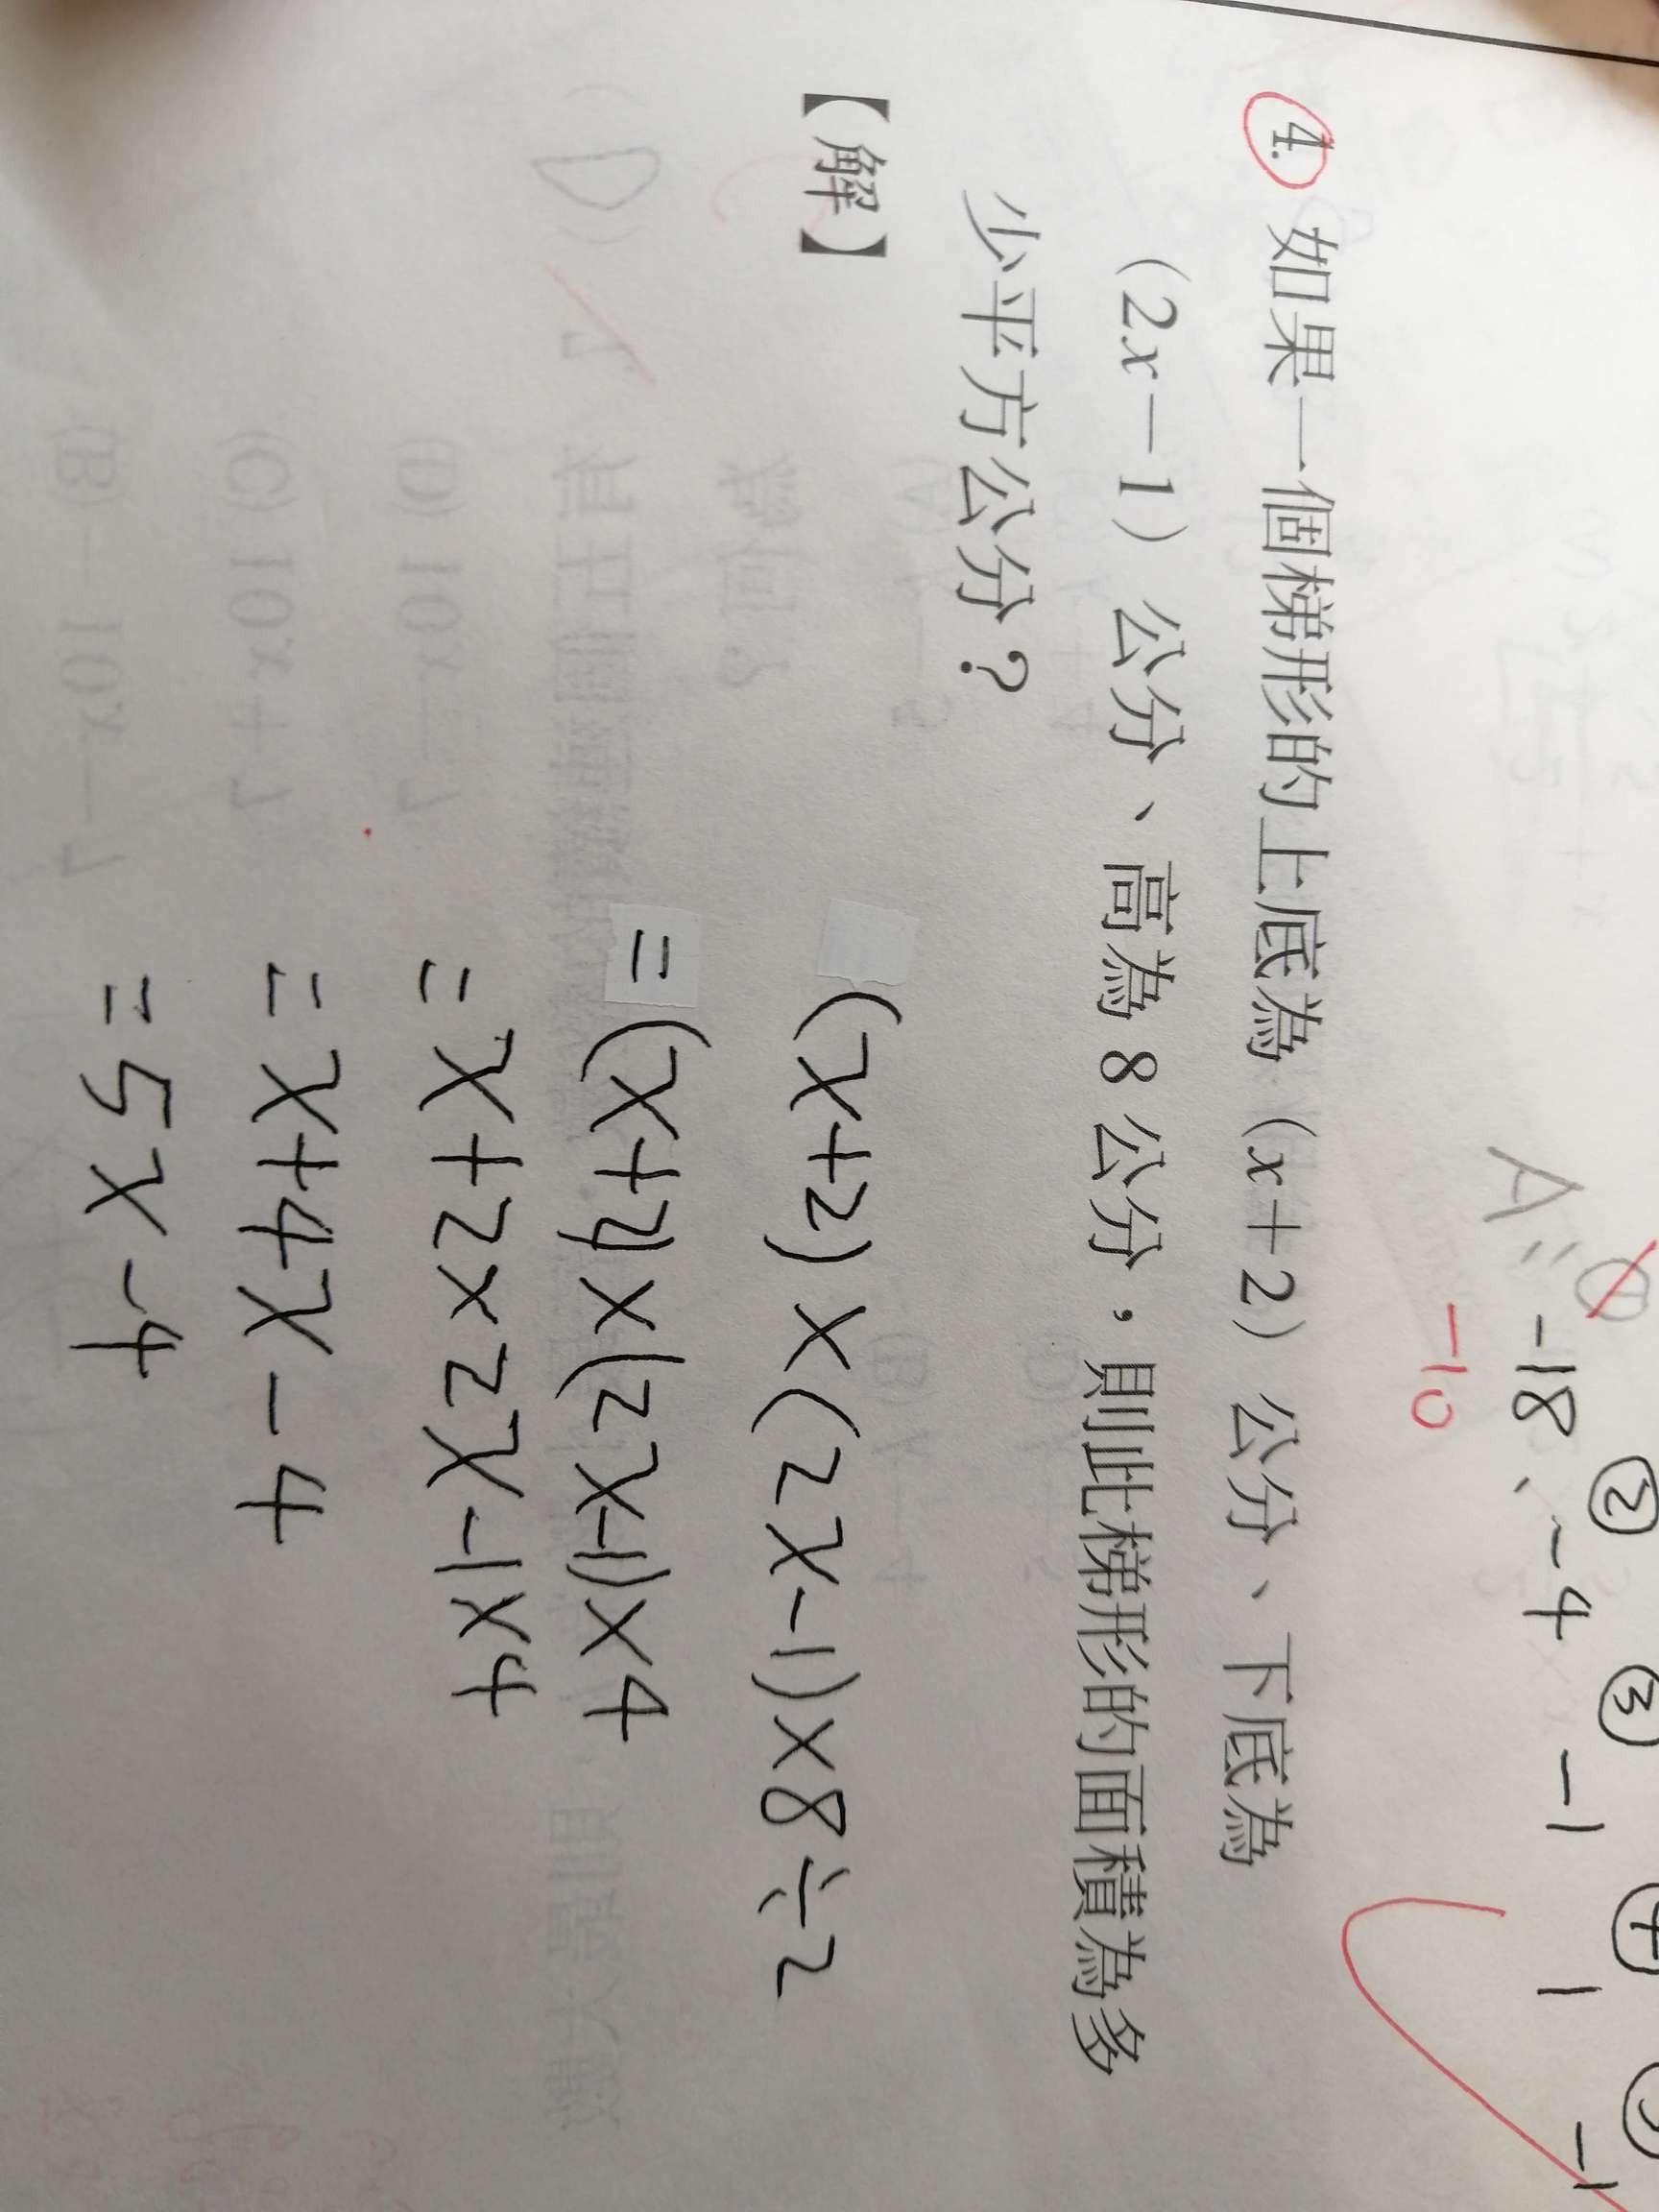 A: ① -18、② -4 ③ -1 ④ 1 -1
-10
4. 如果一個梯形的上底為(x+2)公分、下底為
(2x-1)公分、高為8公分,則此梯形的面積為多
少平方公分?
【解】
(x+2)×(2x-1)×8÷2
=(x+2)×(2x-1)×4
=x+2×2x-1×4
=x+4x-4
=5x-4